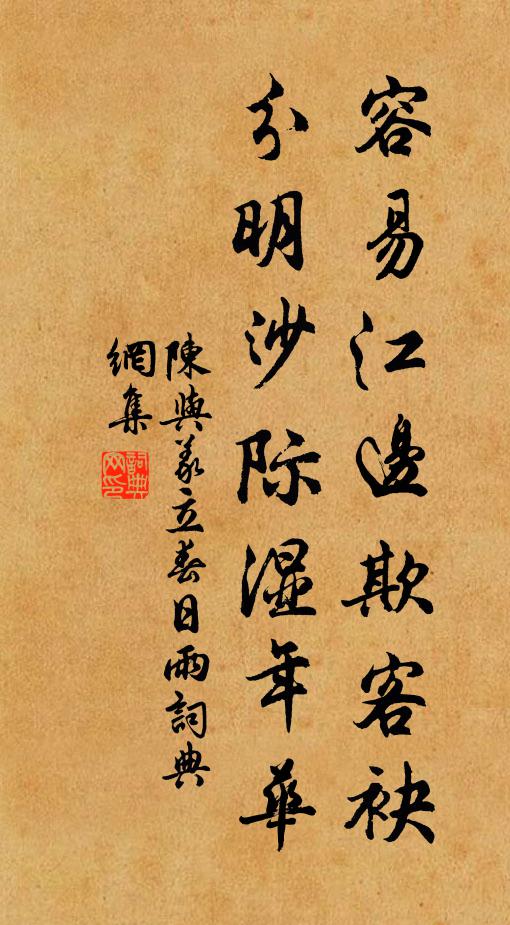 容易江邊欺客袂
分明沙际濕年華
陳與義立春日雨詞典
網集
詞典
网印